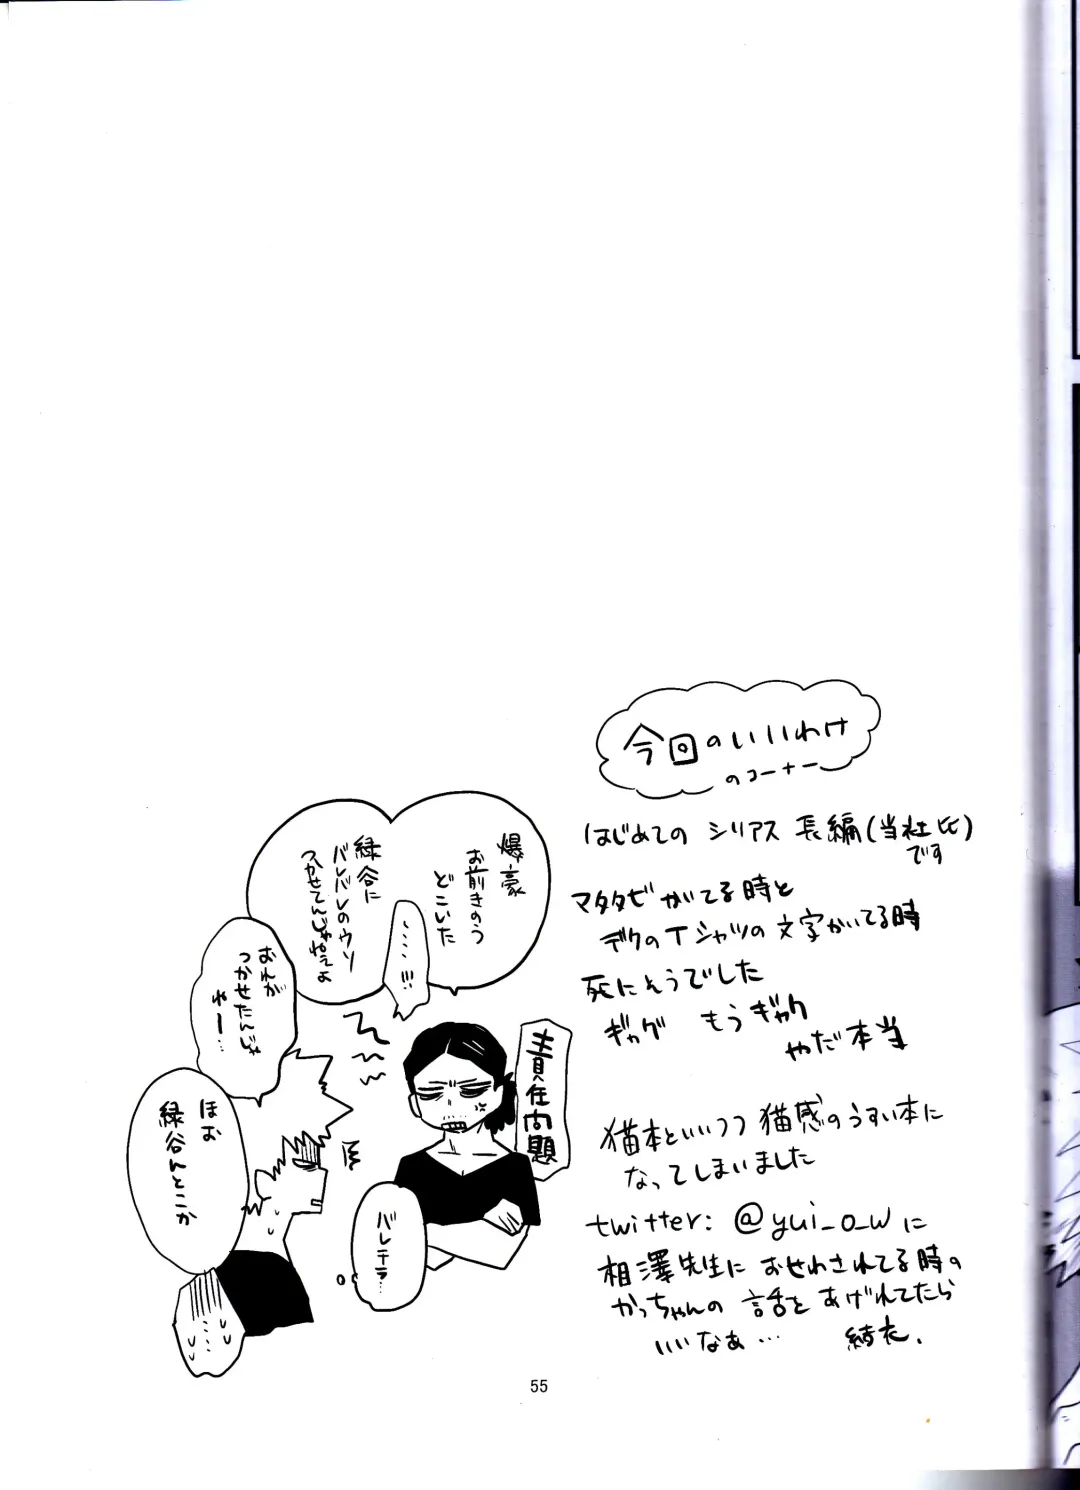 今回のいいわけ
のコーナー
はじめての シリアス 長編(当社比)
です
マタタビかいてる時と
デクのTシャツの文字かいてる時
死にそうでした
ギャグ もうギャグ
やだ本当
猫本といいつつ 猫感のうすい本に
なってしまいました
twitter: @yui_o_wに
相澤先生に おせわされてる時の
かっちゃんの 話を あげれてたら
いいなぁ… 結衣.
爆豪
お前きのう
どこいた
…!!!
緑谷に
バレバレのウソ
つかせてんじゃねぇよ
責任問題
おれが
つかせたんじゃ
ねー…
バレテラ…
ほお
緑谷んとこか
…
55